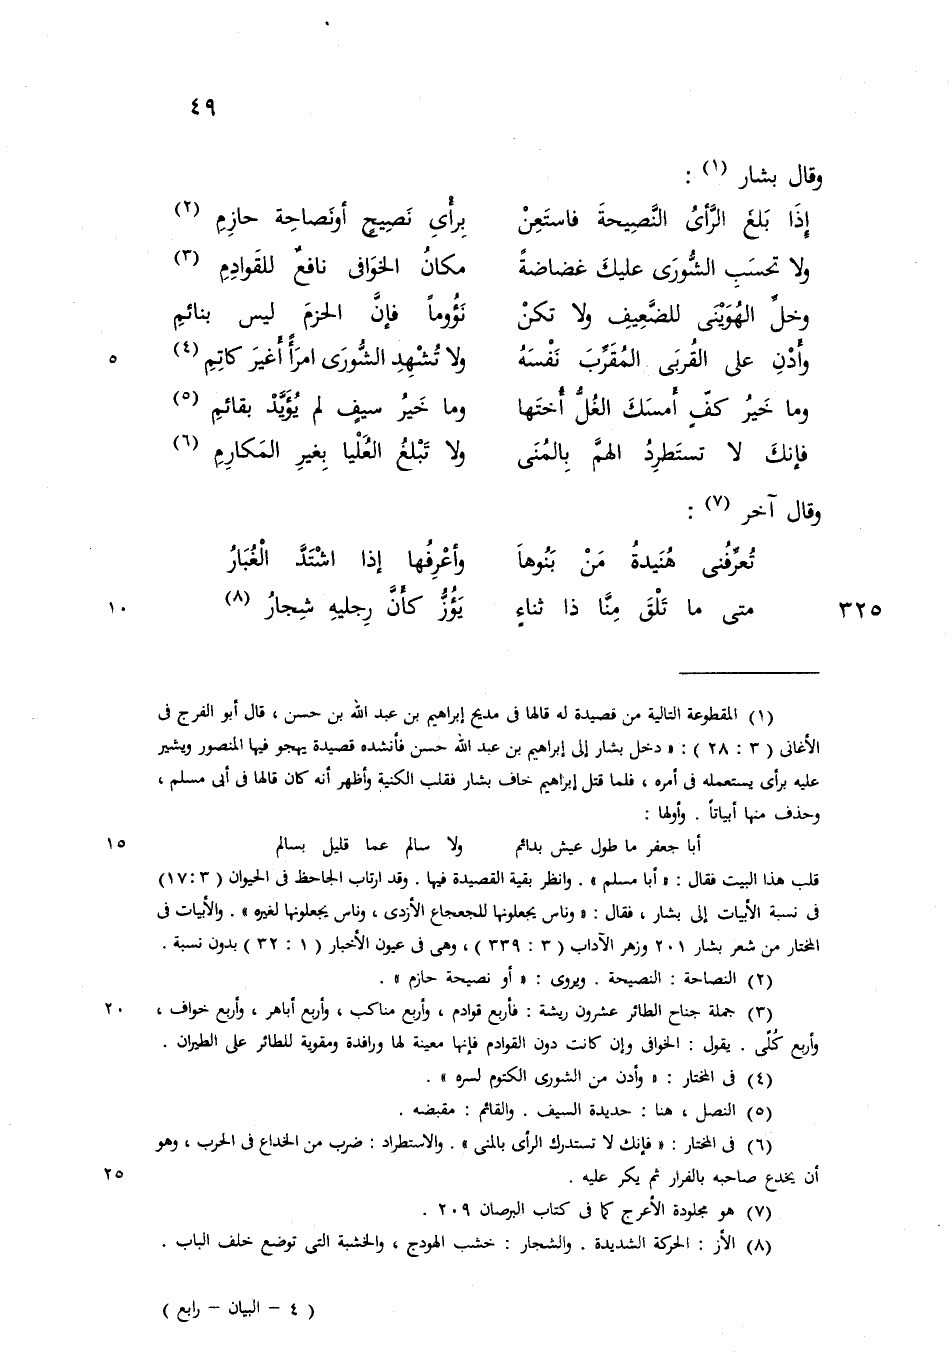 ٤٩
وقال بشار (١) :
إِذَا بَلغَ الرَّأىُ النَّصِيحةَ فاستَعِنْ برأْىِ نَصِيحٍ أونَصاحِة حازِمِ (٢)
ولا تحسَبِ الشُّورَى عليكَ غضاضةً مكانُ الخوَافى نافعٌ للقَوادِمِ (٣)
وخلِّ الهُوَيْنَى للضَّعِيفِ ولا تكنْ نَؤُوماً فإنَّ الحزمَ ليس بنائمِ
وأَدْنِ على القُربَى المُقَرِّبَ نَفْسَهُ ولا تُشْهِدِ الشُّورَى امرَأً أغيرَ كاتِمِ (٤) ٥
وما خَيرُ كفٍّ أمسكَ الغُلُّ أُختَها وما خَيرُ سيفٍ لم يُؤَيَّدْ بقائمِ (٥)
فإنكَ لا تستَطرِدُ الهمَّ بِالمُنَى ولا تَبْلغُ العُلْيا بِغيرِ المَكارِمِ (٦)
وقال آخر (٧) :
تُعرِّفُنى هُنَيدةُ مَنْ بَنُوهاَ وأعْرِفُها إذا اشْتَدَّ الْغُبَارُ
٣٢٥ متى ما تَلْقَ مِنَّا ذا ثناءٍ يَؤُزُّ كأَنَّ رِجليهِ شِجارُ (٨) ١٠
(١) المقطوعة التالية من قصيدة له قالها فى مديح إبراهيم بن عبد الله بن حسن ، قال أبو الفرج فى
الأغانى ( ٣ : ٢٨ ) : « دخل بشار إلى إبراهيم بن عبد الله حسن فأنشده قصيدة يهجو فيها المنصور ويشير
عليه برأى يستعمله فى أمره ، فلما قتل إبراهيم خاف بشار فقلب الكنية وأظهر أنه كان قالها فى أبى مسلم ،
وحذف منها أبياتاً . وأولها :
أبا جعفر ما طول عيش بدائم ولا سالم عما قليل بسالم ١٥
قلب هذا البيت فقال : « أبا مسلم » . وانظر بقية القصيدة فيها . وقد ارتاب الجاحظ فى الحيوان (٣ : ١٧)
فى نسبة الأبيات إلى بشار ، فقال : « وناس يجعلونها للجعجاع الأزدى ، وناس يجعلونها لغيره » . والأبيات فى
المختار من شعر بشار ٢٠١ وزهر الآداب ( ٣ : ٣٣٩ ) ، وهى فى عيون الأخبار ( ١ : ٣٢ ) بدون نسبة .
(٢) النصاحة : النصيحة . ويروى : « أو نصيحة حازم » .
(٣) جملة جناح الطائر عشرون ريشة : فأربع قوادم ، وأربع مناكب ، وأربع أباهر ، وأربع خواف ، ٢٠
وأربع كُلًى . يقول : الخوافى وإن كانت دون القوادم فإنها معينة لها ورافدة ومقوية للطائر على الطيران .
(٤) فى المختار : « وأدن من الشورى الكتوم لسره » .
(٥) النصل ، هنا : حديدة السيف . والقائم : مقبضه .
(٦) فى المختار : « فإنك لا تستدرك الرأى بالمنى » . والاستطراد : ضرب من الخداع فى الحرب ، وهو
أن يخدع صاحبه بالفرار ثم يكر عليه . ٢٥
(٧) هو مجلودة الأعرج كما فى كتاب البرصان ٢٠٩ .
(٨) الأز : الحركة الشديدة . والشجار : خشب الهودج ، والخشبة التى توضع خلف الباب .
( ٤ – البيان – رابع )